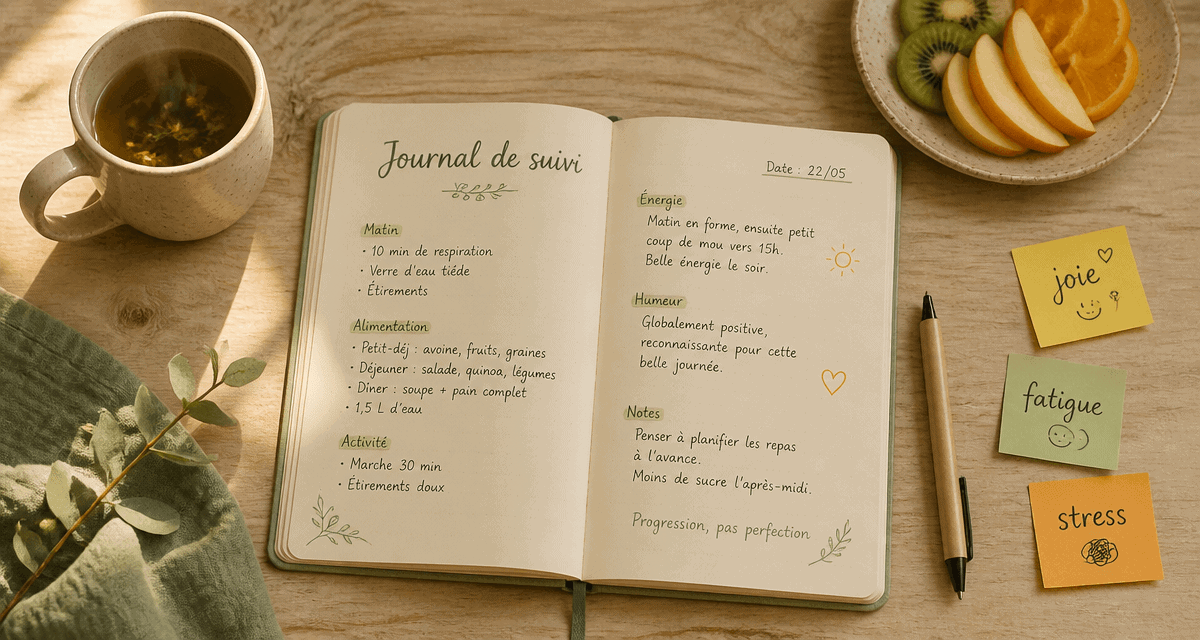 Journal de suivi
Matin
• 10 min de respiration
• Verre d'eau tiède
• Étirements
Alimentation
• Petit-déj : avoine, fruits, graines
• Déjeuner : salade, quinoa, légumes
• Dîner : soupe + pain complet
• 1,5 L d'eau
Activité
• Marche 30 min
• Étirements doux
Date : 22/05
Énergie
Matin en forme, ensuite petit
coup de mou vers 15h.
Belle énergie le soir.
Humeur
Globalement positive,
reconnaissante pour cette
belle journée.
Notes
Penser à planifier les repas
à l'avance.
Moins de sucre l'après-midi.
Progression, pas perfection
joie
fatigue
stress